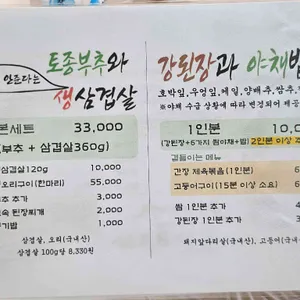 만든다는
토종부추와
생삼겹살
본세트 33,000
부추 + 삼겹살360g)
삼겹살120g 10,000
오리구이(한마리) 55,000
부추 추가 3,000
된장찌개 2,000
공기밥 1,000
삼겹살, 오리(국내산)
삼겹살 100g당 8,330원
강된장과 야채밥
호박잎,우엉잎,메밀,양배추,쌈추,
※야채 수급 상황에 따라 변경되어 제공
1인분 10,0
(강된장+6가지 찜야채+밥) 2인분 이상
곁들이는 메뉴
간장 제육볶음(1인분)
고등어구이(15분 이상 소요)
쌈 1인분 추가
강된장 1인분 추가
돼지앞다리살(국내산), 고등어(국내산)